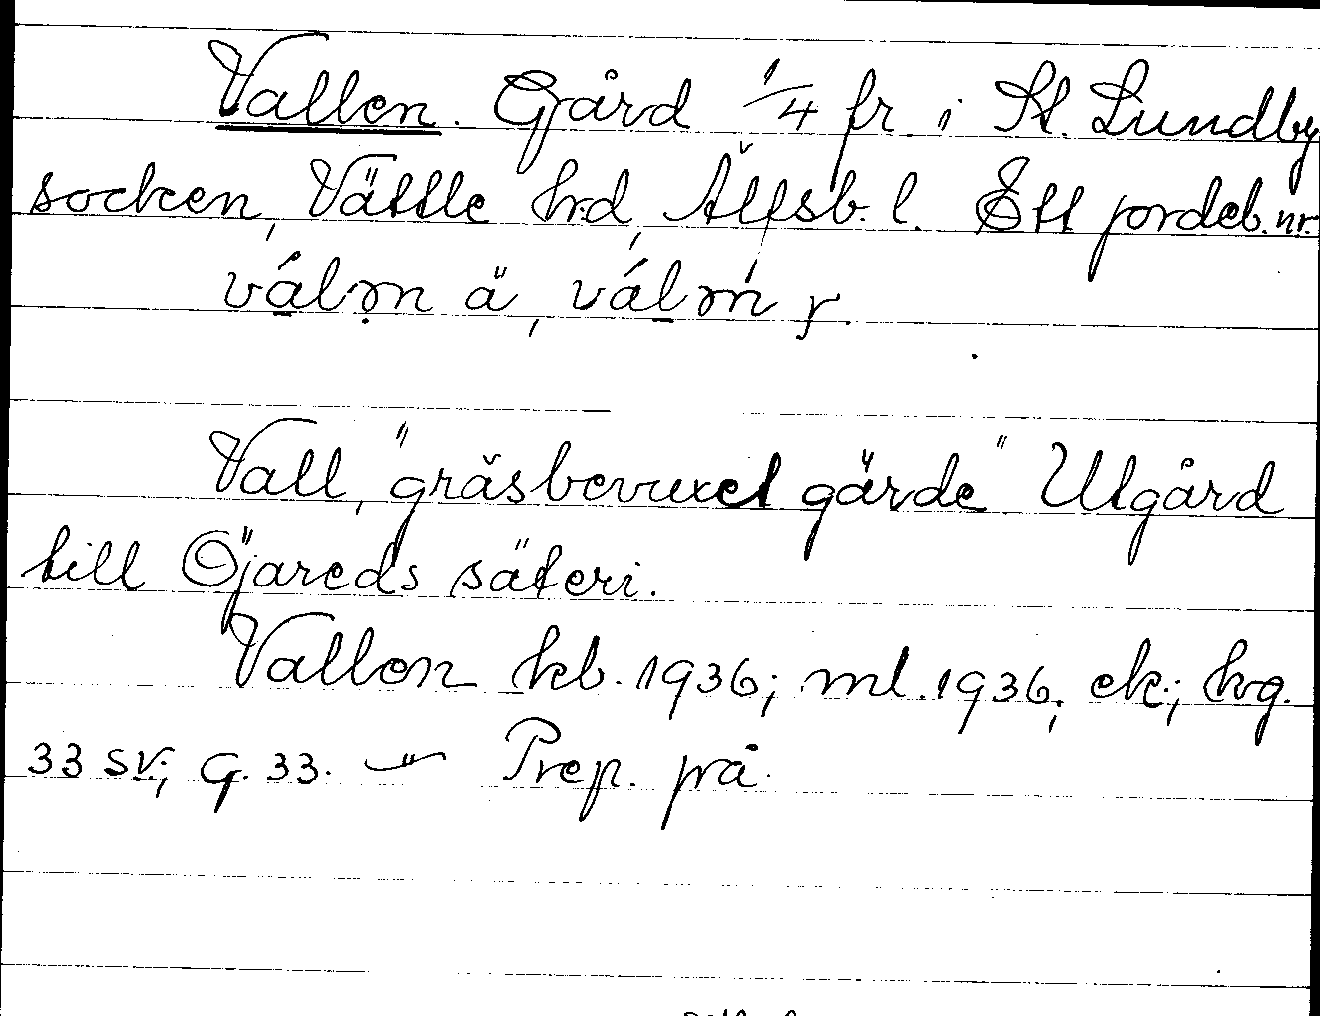 Vallen. Gård 1/4 fr. i St. Lundby
socken, Vättle hd, Älfsb. l. Ett jordeb. nr.
válm ä, válm r.
Vall, "gräsbevuxet gärde" Utgård
till Öjareds säteri.
Vallen kb. 1936; ml. 1936; ek.; hrg.
33 SV; G. 33. — Prep. på.